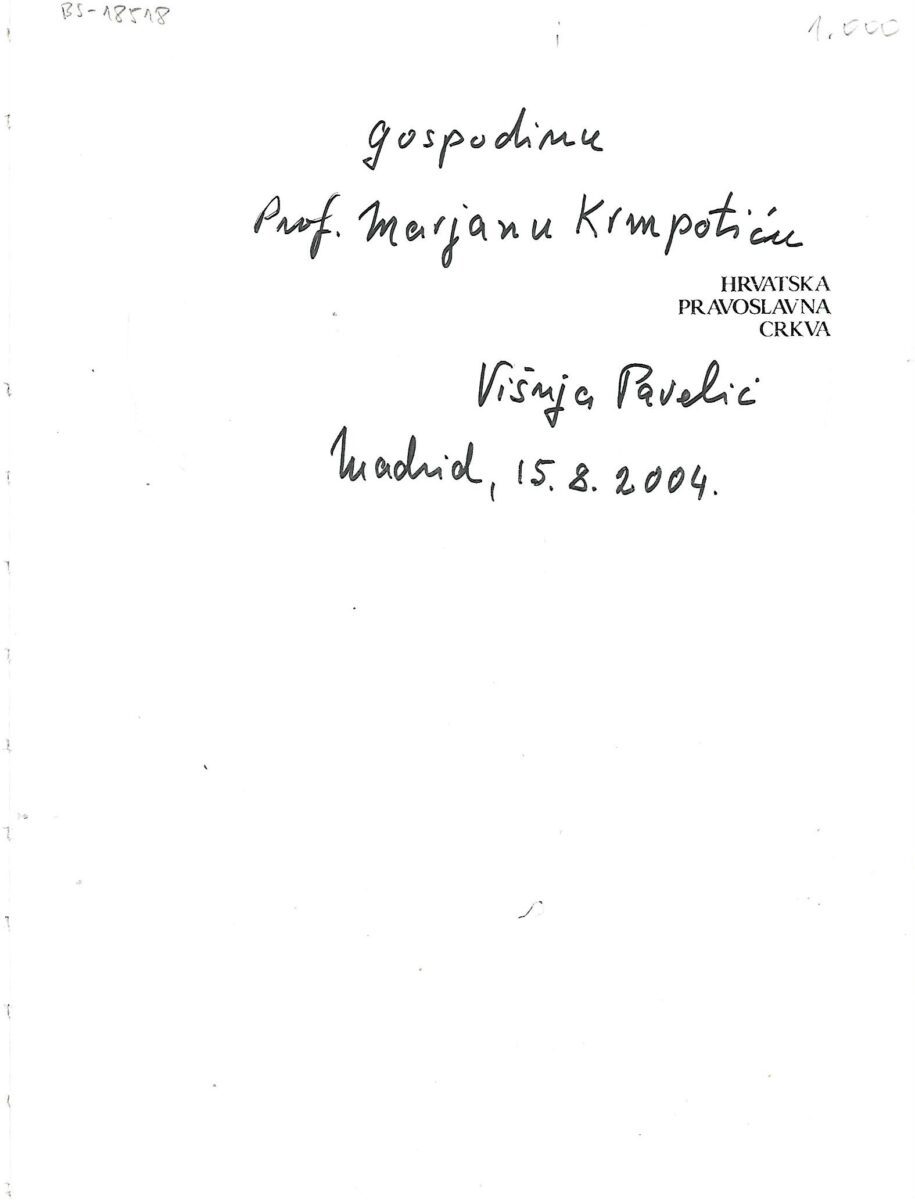 BS-18518
1.000
gospodinu
Prof. Marjanu Krmpotiću
HRVATSKA
PRAVOSLAVNA
CRKVA
Višnja Pavelić
Madrid, 15.8.2004.